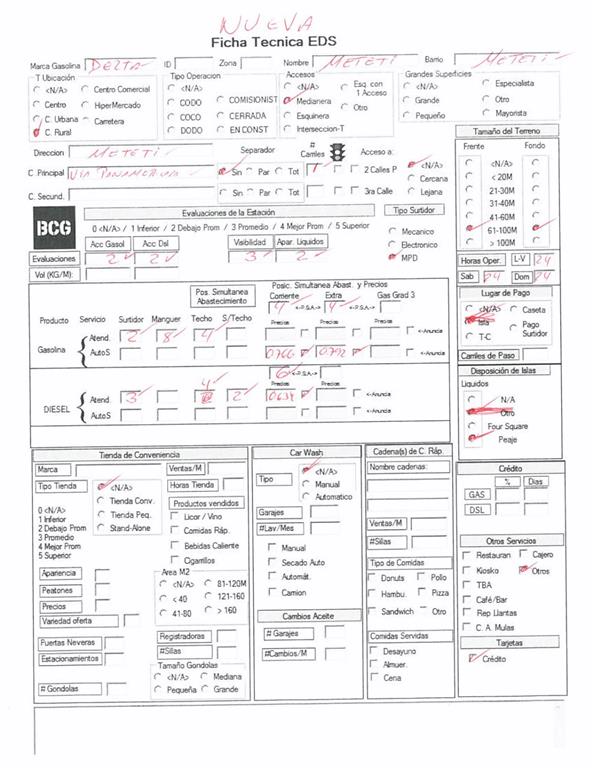 NUEVA
Ficha Tecnica EDS
Marca Gasolina DELTA ID Zona Nombre METETI Barrio METETI
T Ubicación Tipo Operacion Accesos Grandes Superficies
<N/A> Centro Comercial <N/A> <N/A> Esq. con 1 Acceso <N/A> Especialista
Centro HiperMercado CODO COMISIONIST Medianera Otro Grande Otro
C. Urbana Carretera COCO CERRADA Esquinera Pequeño Mayorista
C. Rural DODO EN CONST Interseccion-T
Direccion METETI Separador # Carriles Acceso a:
C. Principal VIA PANAMERICANA Sin Par Tot 1 2 Calles P <N/A>
Cercana
C. Secund. Sin Par Tot 3ra Calle Lejana
Tamaño del Terreno
Frente Fondo
<N/A>
< 20M
21-30M
31-40M
41-60M
61-100M
> 100M
BCG Evaluaciones de la Estación Tipo Surtidor
0 <N/A> / 1 Inferior / 2 Debajo Prom / 3 Promedio / 4 Mejor Prom / 5 Superior
Mecanico
Electronico
MPD
Acc Gasol Acc Dsl Visibilidad Apar. Liquidos
Evaluaciones 2 2 3 2
Vol (KG/M):
Horas Oper. L-V 24
Sab 24 Dom 24
Pos. Simultanea Abastecimiento
Posic. Simultanea Abast. y Precios
Corriente Extra Gas Grad 3
4 <-P.S.A-> 4
Producto Servicio Surtidor Manguer Techo S/Techo Precios Precios Precios
Gasolina Atend. 2 8 4 <-Anuncia
AutoS 0.766 0.792 <-Anuncia
6 <-P.S.A->
Precios Precios
4
DIESEL Atend. 3 2 0.634 <-Anuncia
AutoS <-Anuncia
Lugar de Pago
<N/A> Caseta
Isla Pago Surtidor
T-C
Carriles de Paso
Disposición de Islas
Liquidos
N/A
Otro
Four Square
Peaje
Tienda de Conveniencia
Marca Ventas/M
Tipo Tienda <N/A> Horas Tienda
Tienda Conv.
Tienda Peq.
Stand-Alone
0 <N/A>
1 Inferior
2 Debajo Prom
3 Promedio
4 Mejor Prom
5 Superior
Productos vendidos
Licor / Vino
Comidas Ráp.
Bebidas Caliente
Cigarrillos
Apariencia
Peatones
Precios
Variedad oferta
Area M2
<N/A> 81-120M
< 40 121-160
41-80 > 160
Puertas Neveras Registradoras
Estacionamientos #Sillas
# Gondolas
Tamaño Gondolas
<N/A> Mediana
Pequeña Grande
Car Wash
Tipo <N/A>
Manual
Automatico
Garajes
#Lav/Mes
Manual
Secado Auto
Automát.
Camion
Cambios Aceite
# Garajes
#Cambios/M
Cadena(s) de C. Ráp.
Nombre cadenas:
Ventas/M
#Sillas
Tipo de Comidas
Donuts Pollo
Hambu. Pizza
Sandwich Otro
Comidas Servidas
Desayuno
Almuer.
Cena
Crédito
% Dias
GAS
DSL
Otros Servicios
Restauran Cajero
Kiosko Otros
TBA
Café/Bar
Rep Llantas
C. A. Mulas
Tarjetas
Crédito